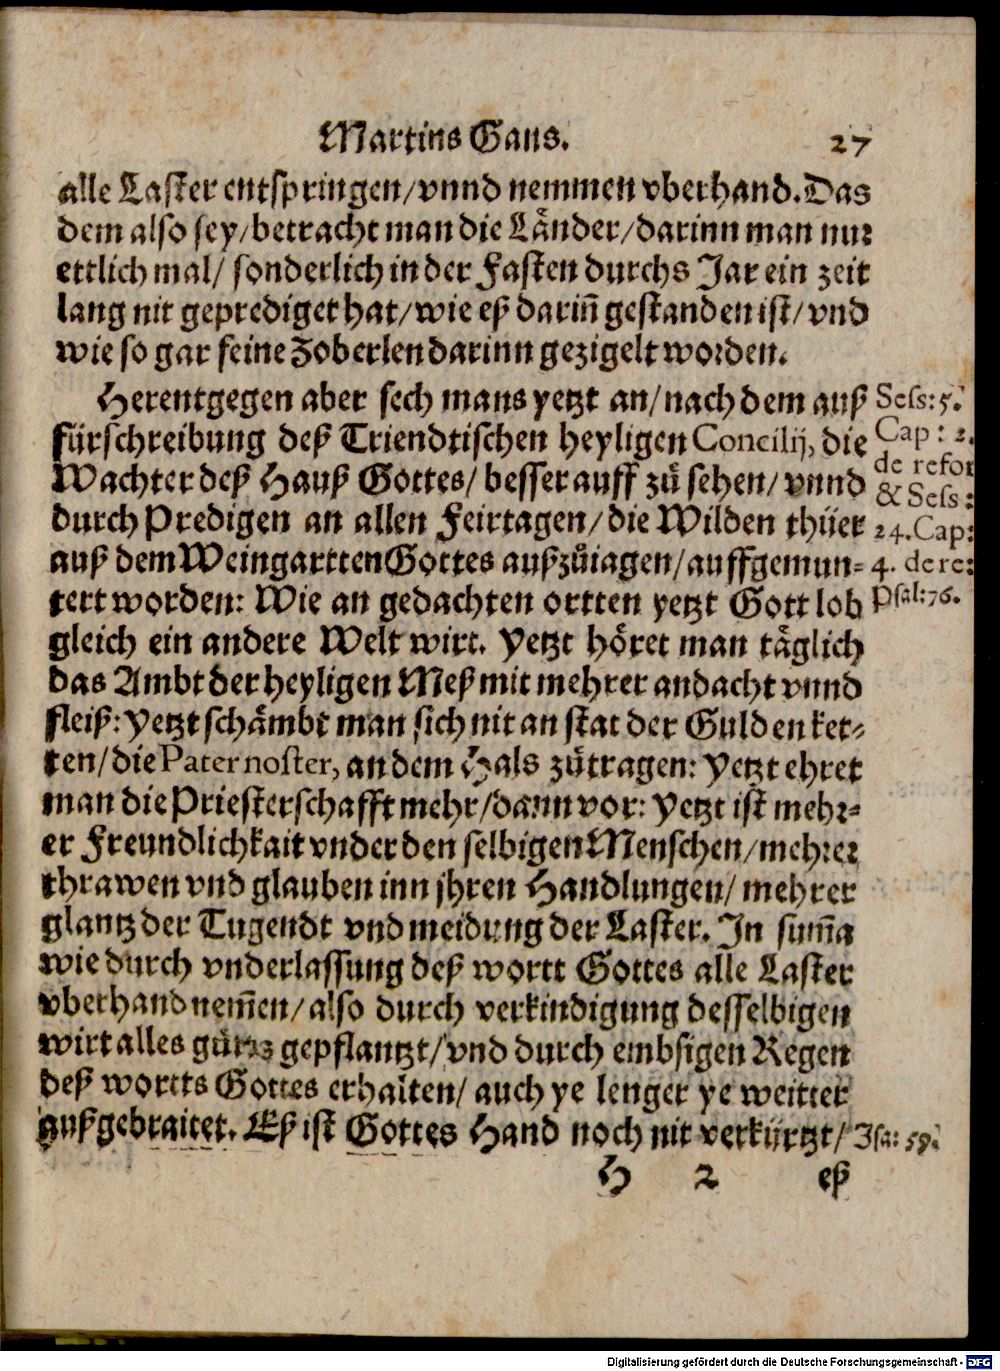 Martins Gans. 27
alle Laster entspringen/ vnnd nemmen vberhand. Das
dem also sey/ betracht man die Länder/ darinn man nur
ettlich mal/ sonderlich in der Fasten durchs Jar ein zeit
lang nit geprediget hat/ wie eß dariñ gestanden ist/ vnd
wie so gar feine Zoberlen darinn gezigelt worden.
Herentgegen aber sech mans yetzt an/ nach dem auß
fürschreibung deß Triendtischen heyligen Concilij, die
Wachter deß Hauß Gottes/ besser auff zů sehen/ vnnd
durch Predigen an allen Feirtagen/ die Wilden thüer
auß dem Weingartten Gottes außzůiagen/ auffgemun-
tert worden: Wie an gedachten ortten yetzt Gott lob
gleich ein andere Welt wirt. Yetzt höret man täglich
das Ambt der heyligen Meß mit mehrer andacht vnnd
fleiß: Yetzt schämbt man sich nit an stat der Gulden ket-
ten/ die Pater noster, an dem Hals zůtragen: Yetzt ehret
man die Priesterschafft mehr/ dann vor: Yetzt ist mehr-
er Freundlichkait vnder den selbigen Menschen/ mehrer
thrawen vnd glauben inn jhren Handlungen/ mehrer
glantz der Tugendt vnd meidung der Laster. In sum̃a
wie durch vnderlassung deß wortt Gottes alle Laster
vberhand nem̃en/ also durch verkindigung desselbigen
wirt alles gůtz gepflantzt/ vnd durch embsigen Regen
deß wortts Gottes erhalten/ auch ye lenger ye weitter
außgebraitet. Eß ist Gottes Hand noch nit verkürtzt/
H 2 eß
Sess: 5.
Cap: 2.
de refor
& Sess:
24. Cap:
4. de re:
Psal: 76.
Isa: 59.
Digitalisierung gefördert durch die Deutsche Forschungsgemeinschaft - DFG